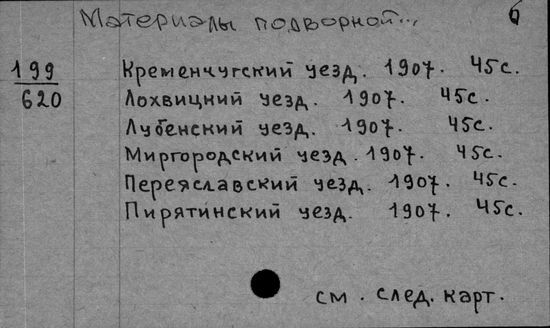 Материалы подворной... 6
199 Кременчугский уезд. 1907. 45с.
620 Лохвицкий уезд. 1907. 45с.
Лубенский уезд. 1907. 45с.
Миргородский уезд. 1907. 45с.
Переяславский уезд. 1907. 45с.
Пирятинский уезд. 1907. 45с.
см. след. карт.